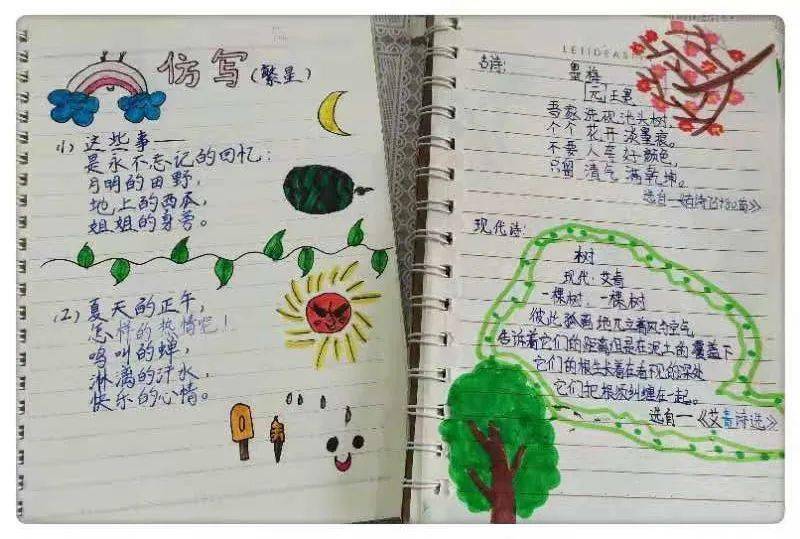 仿写(繁星)
(1) 这些事——
是永不忘记的回忆:
月明的田野,
地上的西瓜,
姐姐的身旁。
(2) 夏天的正午,
怎样的热情呢!
鸣叫的蝉,
淋漓的汗水,
快乐的心情。
LEIIDEASM
古诗: 墨梅
[元]王冕
吾家洗砚池头树,
个个花开淡墨痕。
不要人夸好颜色,
只留清气满乾坤。
选自—《古诗
现代诗:
树
现代·艾青
一棵树,一棵树
彼此孤离地兀立着风与空气
告诉着它们的距离但是在泥土的覆盖下
它们的根生长着在看不见的深处
它们把根须纠缠在一起。
选自—《艾青诗选》